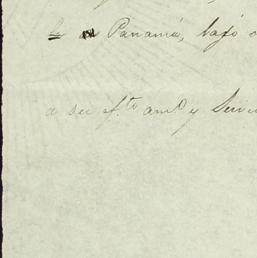 Panamá, bajo
a su af.to am.o y Servi